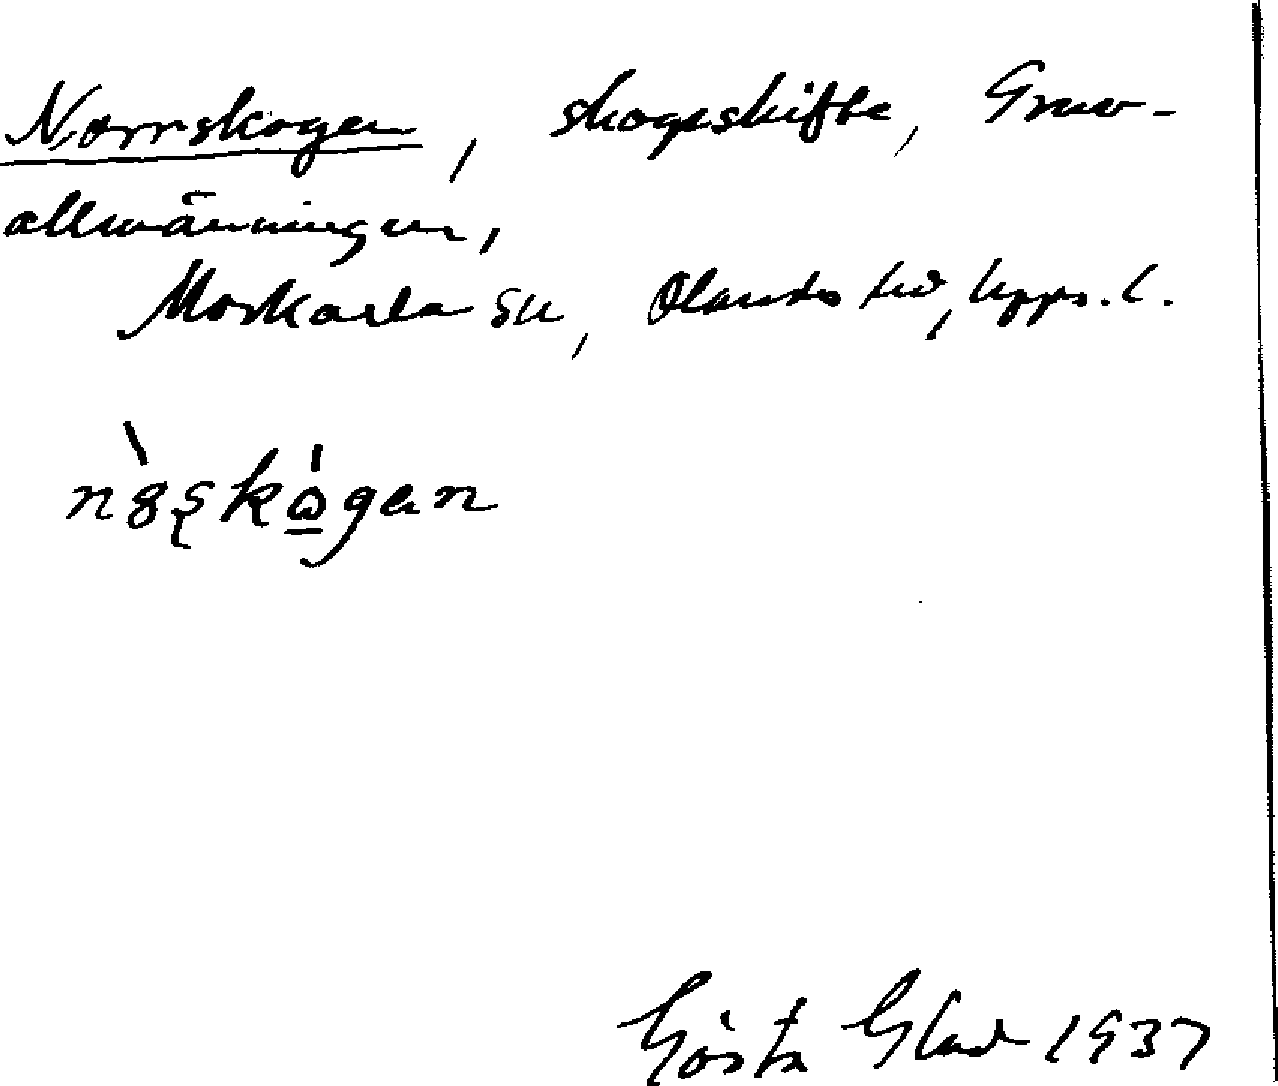 Norrskogen, skogsskifte, Gruv-
allmänningen,
Morkarla sn, Olands hd, Upps. l.
Gösta Glad 1937